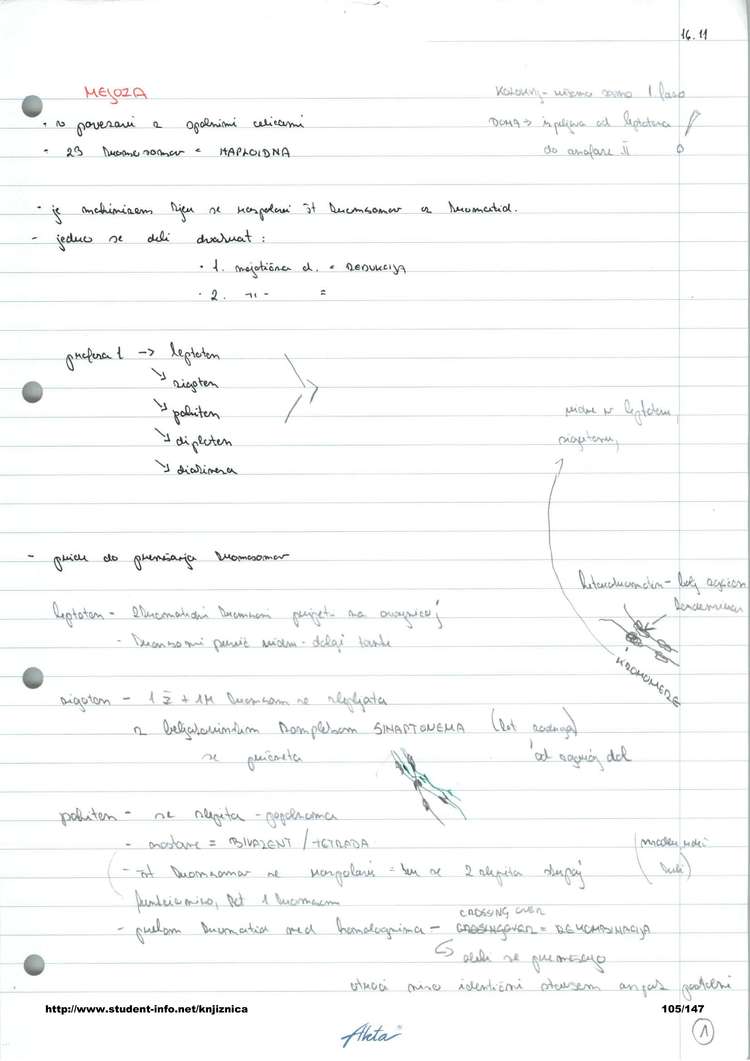 16.11
MEJOZA
Kolokvij - nismo samo 1 fazo
• v povezavi z spolnimi celicami
DOMA → izpeljava od leptotena
- 23 kromosomov = HAPLOIDNA
do anafaze II
- je mehanizem kjer se razpolovi št kromosomov oz kromatid.
- jedro se deli dvakrat :
• 1. mejotična d. = REDUKCIJA
• 2. -11- =
profaza 1 -> leptoten
↘ zigoten
↘ pahiten
↘ diploten
↘ diakineza
vidne v leptotenu,
zigotenu,
- pride do krajšanja kromosomov
heterokromatin - bolj
leptoten - 2kromatidni kromosomi na ovojnico
- kromosomi prvič vidni - dolgi tanki
KROMOMERE
zigoten - 1 ž + 1M kromosom se zlepljata
z beljakovinskim kompleksom SINAPTONEMA (kot zadrga)
se pričneta od zgoraj dol
pahiten - se zlepita - popolnoma
- nastane = BIVALENT / TETRADA
- št kromosomov se razpolovi = ker se 2 zlepita skupaj
funkcionirajo, kot 1 kromosom
CROSSING OVER
- prelom kromatid med homolognima - CROSSINGOVER = REKOMBINACIJA
↳ deli se premešajo
otroci niso identični staršem ampak podobni
http://www.student-info.net/knjiznica
105/147
Akta
1